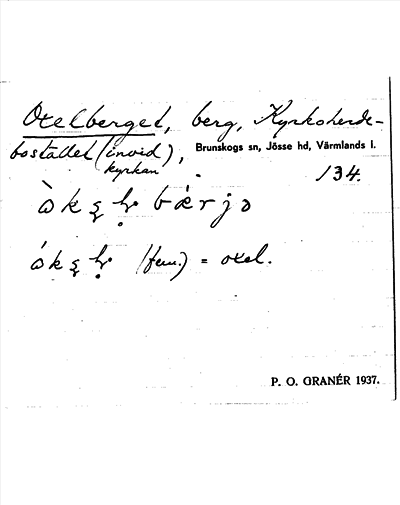 Oxelberget, berg, Kyrkoherde-
bostället (invid kyrkan), Brunskogs sn, Jösse hd, Värmlands l.
134.
(fem.) = oxel.
P. O. GRANÉR 1937.